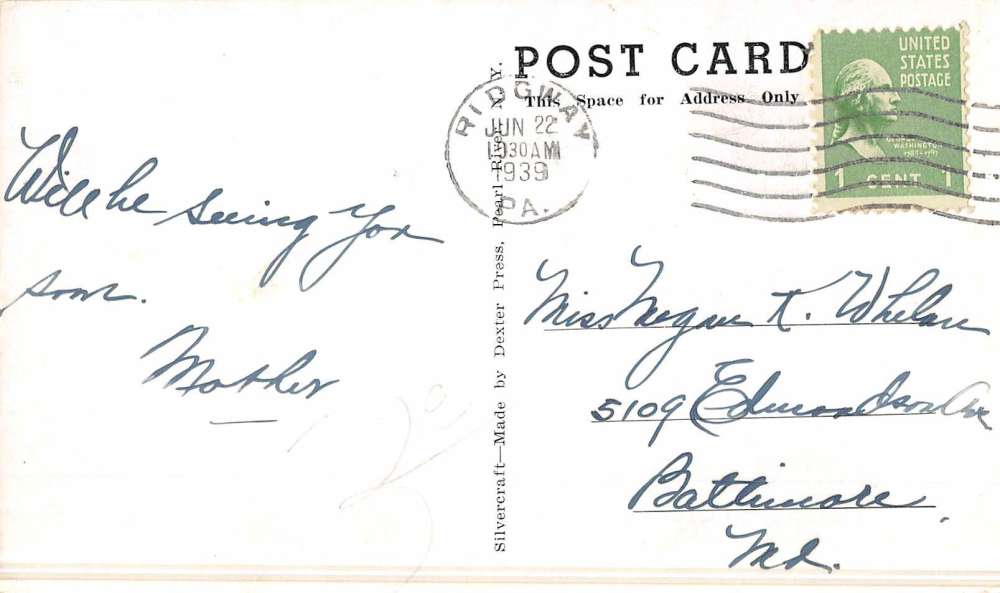 POST CARD
This Space for Address Only
UNITED
STATES
POSTAGE
GEORGE
WASHINGTON
1789-1797
1 CENT 1
RIDGWAY
JUN 22
1030AM
1939
PA.
Will be seeing you
soon.
Mother
Silvercraft—Made by Dexter Press, Pearl River, N. Y.
Miss Megan K. Whelan
5109 Edmondson Ave
Baltimore,
Md.